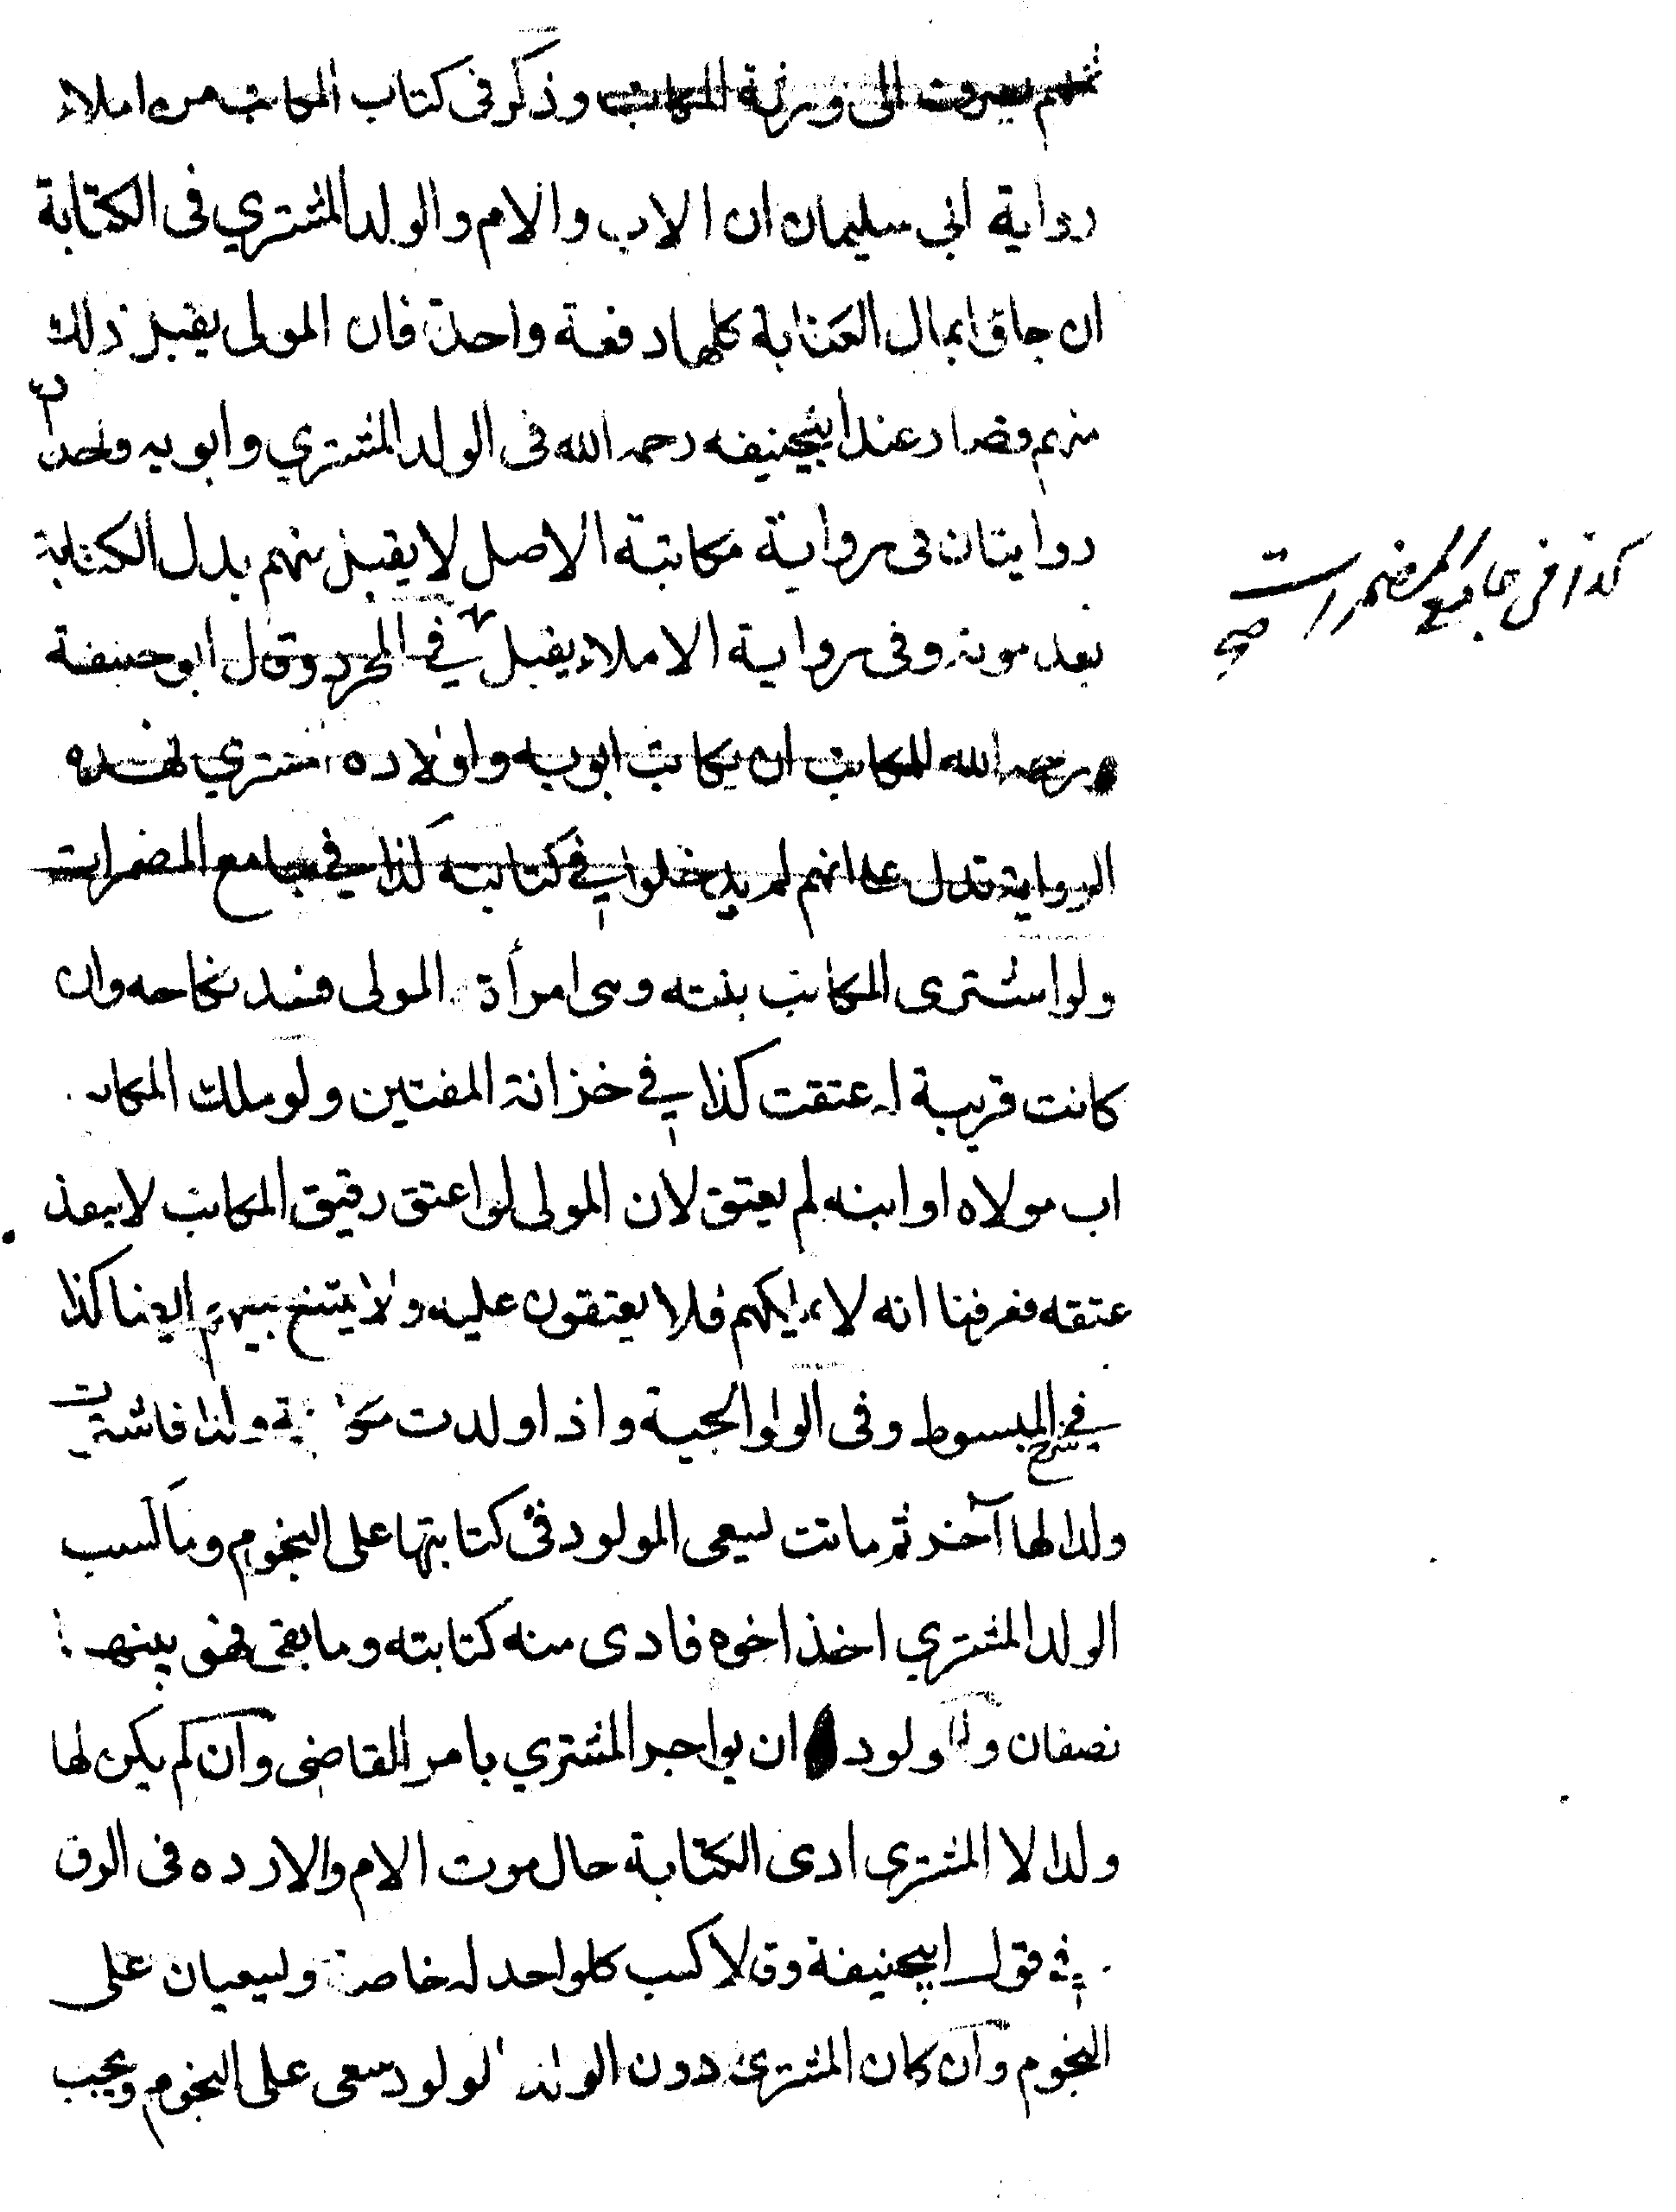 منهم يصرف الى ورثة المكاتب وذكر فى كتاب المكاتب من املاء
رواية ابى سليمان ان الاب والام والولد المشتري فى الكتابة
ان جاؤا بمال الكتابة كلها دفعة واحدة فان المولى يقبل ذلك
منهم فصار عند ابيحنيفه رحمه الله فى الولد المشتري وابويه
روايتان فى رواية مكاتبة الاصل لا يقبل منهم بدل الكتابة
بعد موته وفى رواية الاملاء يقبل في المجرد وقال ابو حنيفة
كذا فى جامع المضمرات صح
رحمه الله للمكاتب ان يكاتب ابويه واولاده المشتري فهذه
الرواية تدل على انهم لم يدخلوا في كتابته كذا في جامع المضمرات
ولو اشترى المكاتب بنته وهى امرأة المولى فسد نكاحه وان
كانت قريبة له عتقت كذا في خزانة المفتين ولو ملك المكاتب
اب مولاه او ابنه لم يعتق لان المولى لو اعتق رقيق المكاتب لا ينفذ
عتقه فعرفنا انه لا يملكهم فلا يعتقون عليه ولا يمتنع بيعهم ايضا كذا
في شرح المبسوط وفى الولوالجية واذا ولدت مكاتبة ولدا فاشترت
ولدا لها آخر ثم ماتت يسعى المولود فى كتابتها على النجوم وما كسب
الولد المشتري اخذ اخوه فادى منه كتابته وما بقى فهو بينهما
نصفان وللمولود ان يواجر المشتري بامر القاضى وان لم يكن لها
ولد الا المشترى ادى الكتابة حال موت الام والا رده فى الرق
في قول ابيحنيفة وقالا كسب كل واحد له خاصة ويسعيان على
النجوم وان كان المشترى دون الولد المولود سعى على النجوم ويجب